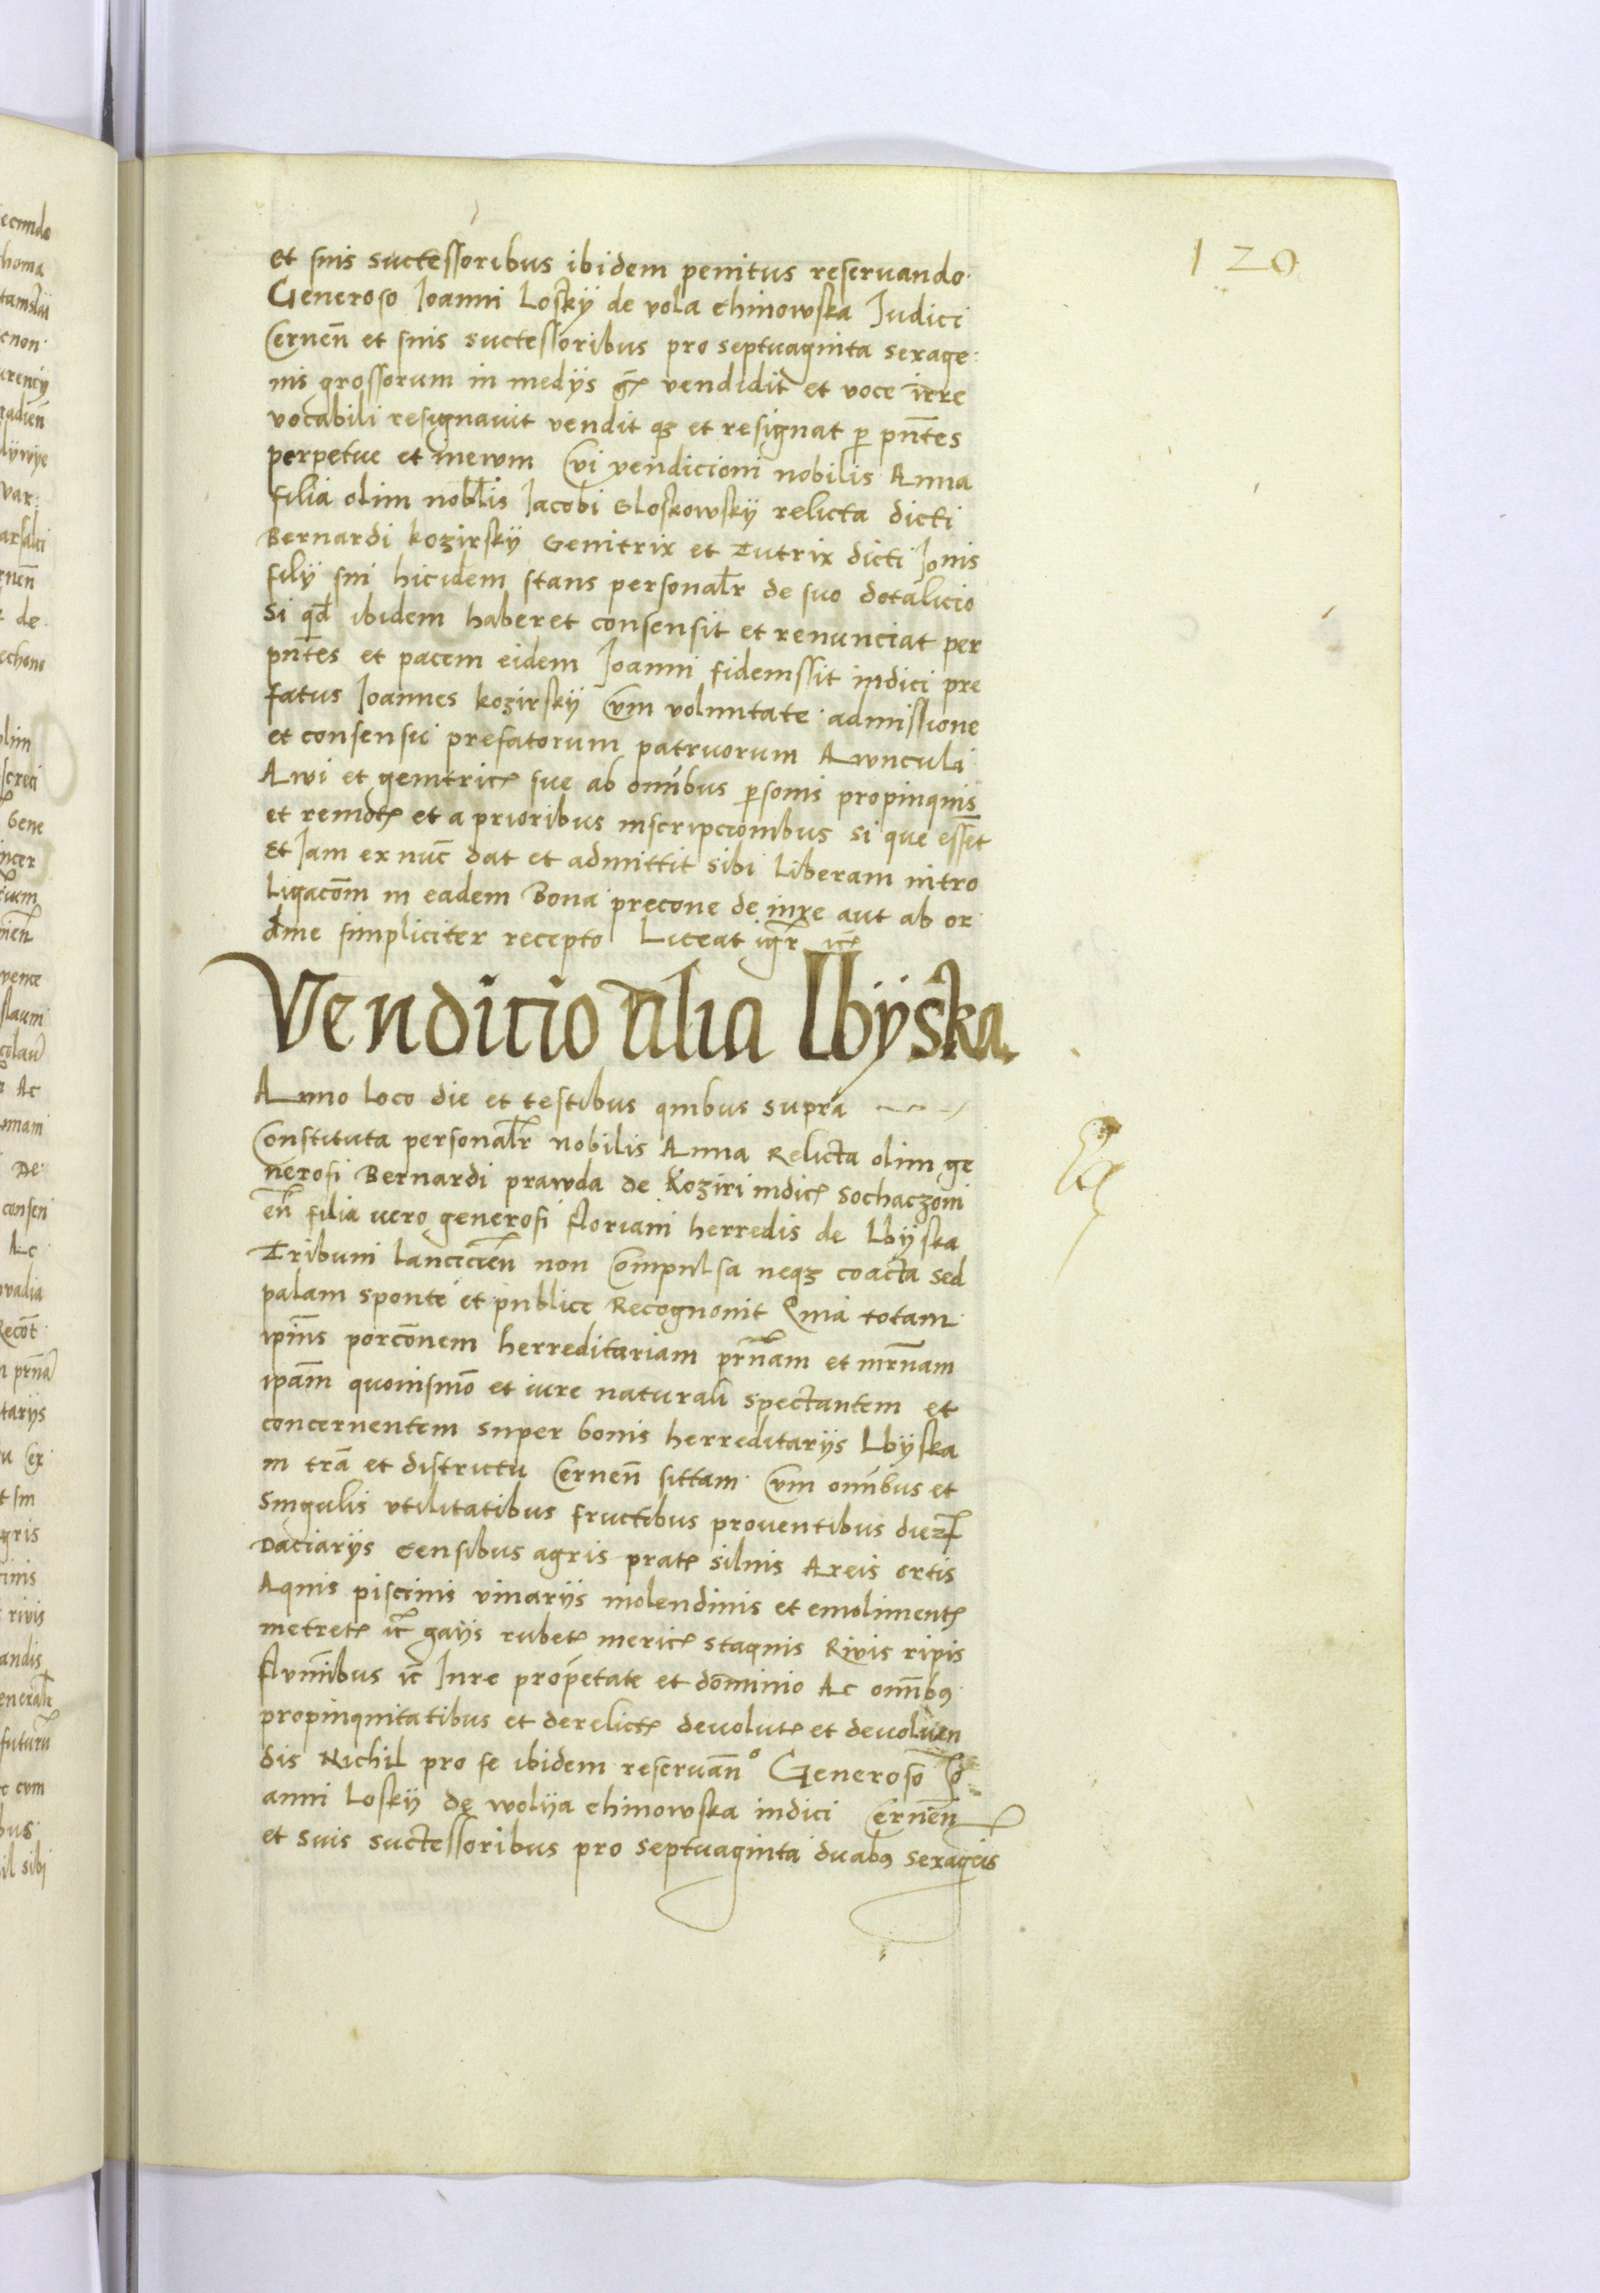 120
et suis successoribus ibidem penitus reseruando
Generoso Joanni Loskÿ de vola chinowska Judici
Cernen̄ et suis successoribus pro septuaginta sexage:
nis grossorum in medÿs gr̄ vendidit et voce irre
vocabili resignauit vendit qȝ et resignat ꝑ pn̄tes
perpetue et in ewm Cui vendicioni nobilis Anna
filia olim nobl̄is Jacobi Gloskowskÿ relicta dicti
Bernardi kozirskÿ Genitrix et Tutrix dicti Jo͞nis
filÿ sui hicidem stans personalr̄ de suo dotalicio
si qd̄ ibidem haberet consensit et renunciat per
pn̄tes et pacem eidem Joanni fidemssit iudici pre
fatus Joannes kozirskÿ Cum voluntate admissione
et consensu prefatorum patruorum Awnculi
Awi et genitricꝭ sue ab om̄ibus ꝑsonis propinquis
et remotꝭ et a prioribus inscripcionibus si que essēt
Et Jam ex nūc dat et admittit sibi Liberam intro
Ligacōm in eadem Bona precone de iure aut ab or
dine simpliciter recepto Liceat igr̄ ic̄
Vendicio alia Lbÿska
Anno loco die et testibus quibus supra
Constituta personalr̄ nobilis Anna Relicta olim ge
nerosi Bernardi prawda de Koziri iudicꝭ sochaczoui
en̄ filia uero generosi floriani herredis de Lbÿska
Tribuni lancicien̄ non Compulsa neqȝ coacta sed
palam sponte et publice Recognouit Quia totam
ip̄ius porcōnem herreditariam pr̄nam et mr̄nam
ip̄am quouismō et iure naturali spectantem et
concernentem super bonis herreditarÿs Lbÿska
in tr̄a et districtu Cernen̄ sittam Cum om̄ibus et
singulis vtilitatibus fructibus prouentibus
Daciarÿs censibus agris pratꝭ siluis Areis ortis
Aquis piscinis vinarÿs molendinis et emolimentꝭ
metretꝭ ic̄ gaÿs rubetꝭ mericꝭ stagnis Riuis ripis
flum̄ibus ic̄ Jure prop̄etate et dominio Ac om̄ibꝰ
propinquitatibus et derelictꝭ deuolutꝭ et deuoluen
dis Nichil pro se ibidem reseruan̄º Generoso Jo
anni Loskÿ de wolÿa chinowska iudici Cernen̄
et suis successoribus pro septuaginta duabꝰ sexageīs